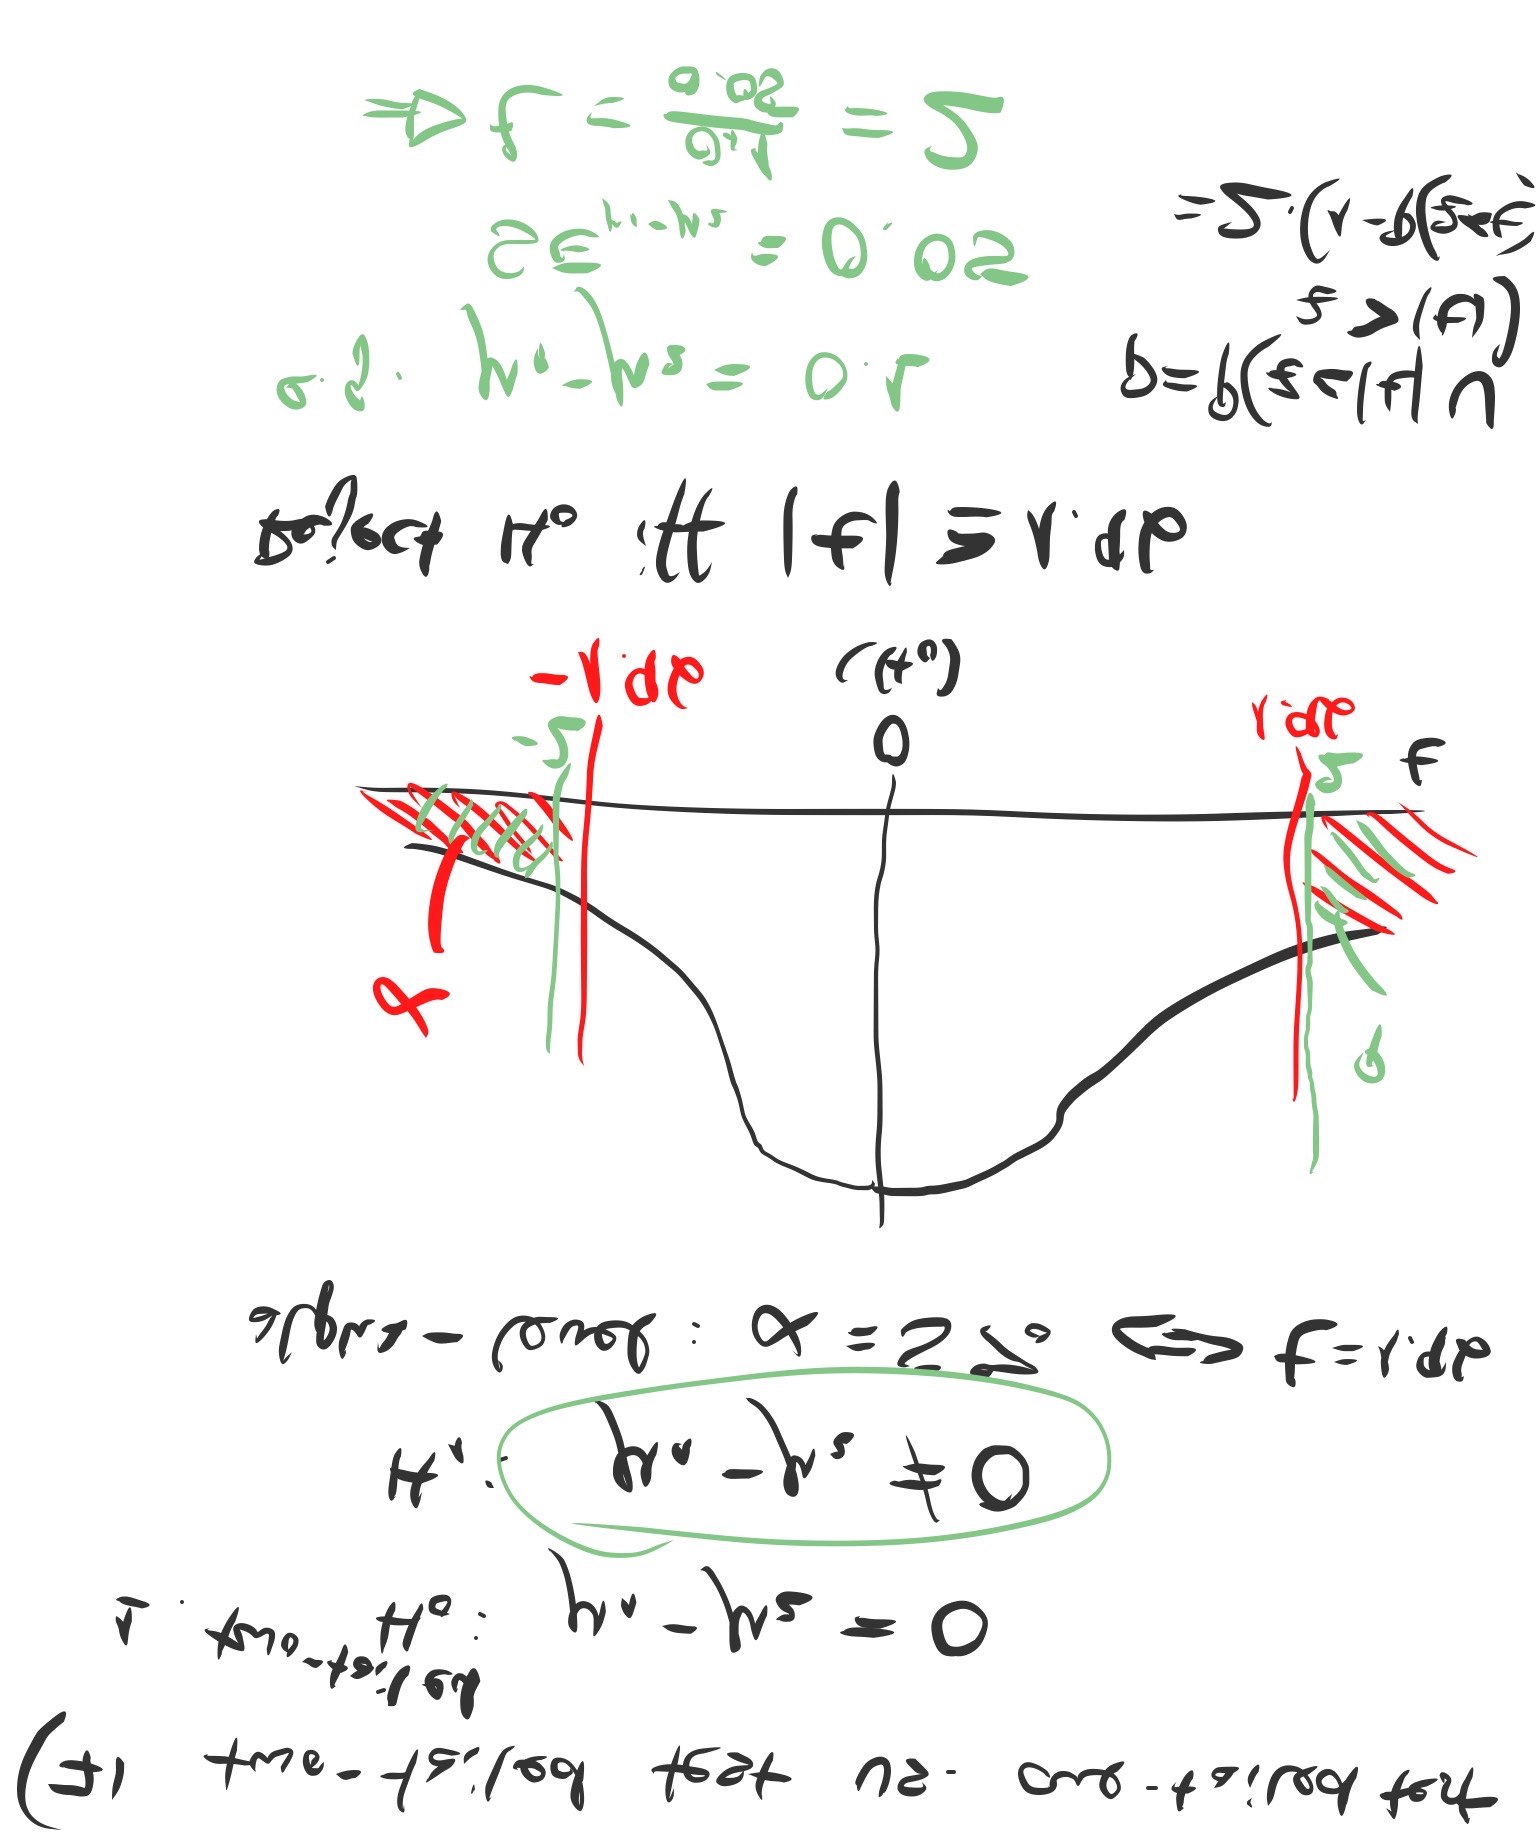 (7) two-tailed test vs. one-tailed test
1. two-tailed
H₀: μ₁ - μ₂ = 0
H₁: μ₁ - μ₂ ≠ 0
alpha-level: α = 5% ⟺ t=1.96
α
P
-2
-1.96
0
(H₀)
2
1.96
t
Reject H₀ iff |t| ≥ 1.96
e.g. μ₁-μ₂ = 0.1
SE μ₁-μ₂ = 0.05
⇒ t = 0.1/0.05 = 2
p=P(z<|t| ∪
z>|t|)
=2·(1-P(z<t)